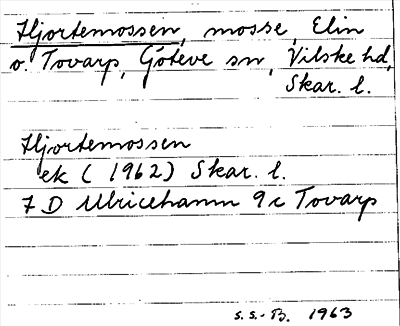 Hjortemossen, mosse, Elin
o. Tovarp, Göteve sn, Vilske hd,
Skar. l.
Hjortemossen
ek (1962) Skar. l.
7 D Ulricehamn 9c Tovarp
s.s.-B. 1963